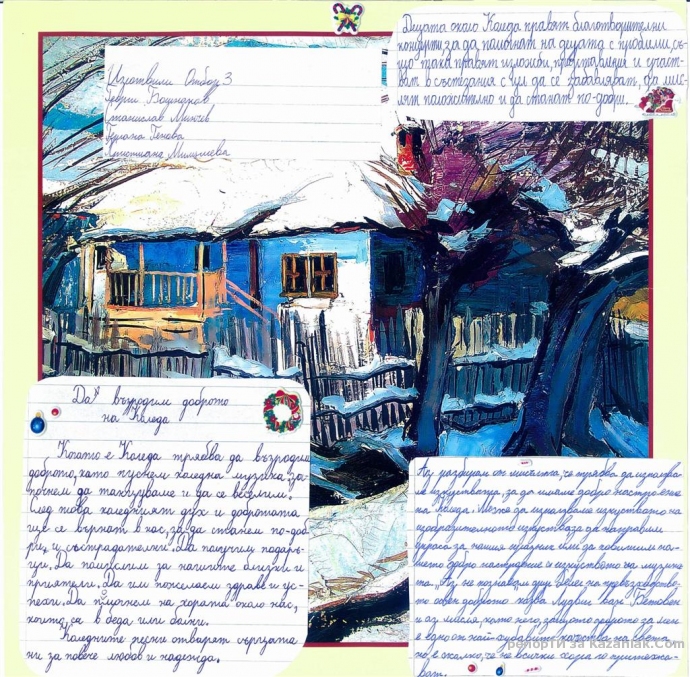 Изготвили Отбор 3
Георги Башнаков
Станислав Минчев
Гергана Генова
Християна Милушева
Децата около Коледа правят благотворителни
концерти, за да помогнат на децата с проблеми, съ-
що така правят изложби, представления и участ-
ват в състезания с цел да се забавляват, да мис-
лят положително и да станат по-добри.
Да възродим доброто
на Коледа
Когато е Коледа трябва да възродим
доброто, като пуснем коледна музика, за-
почнем да танцуваме и да се веселим.
След това коледният дух и добротата
ще се върнат в нас, за да станем по-доб-
ри, и състрадателни. Да получим подаръ-
ци. Да помислим за нашите близки и
приятели. Да им пожелаем здраве и ус-
пехи. Да помогнем на хората около нас,
които са в беда или болни.
Коледните песни отварят сърцата
ни за повече любов и надежда.
Аз разбирам от мисълта, че трябва да използва-
ме изкуствата, за да имаме добро настроение
на Коледа. Може да използваме изкуството на
изобразителното изкуство за да направим
украса за нашия празник или да повишим на-
шето добро настроение и изкуството на музика-
та. „Аз не познавам друг белег на превъзходство-
то освен доброто“ казва Лудвиг ван Бетовен
и аз мисля като него, защото доброто за мен
е едно от най-хубавите качества на света
но е жалко, че не всички хора го притежа-
ват.
репорти за Kazanlak.Com